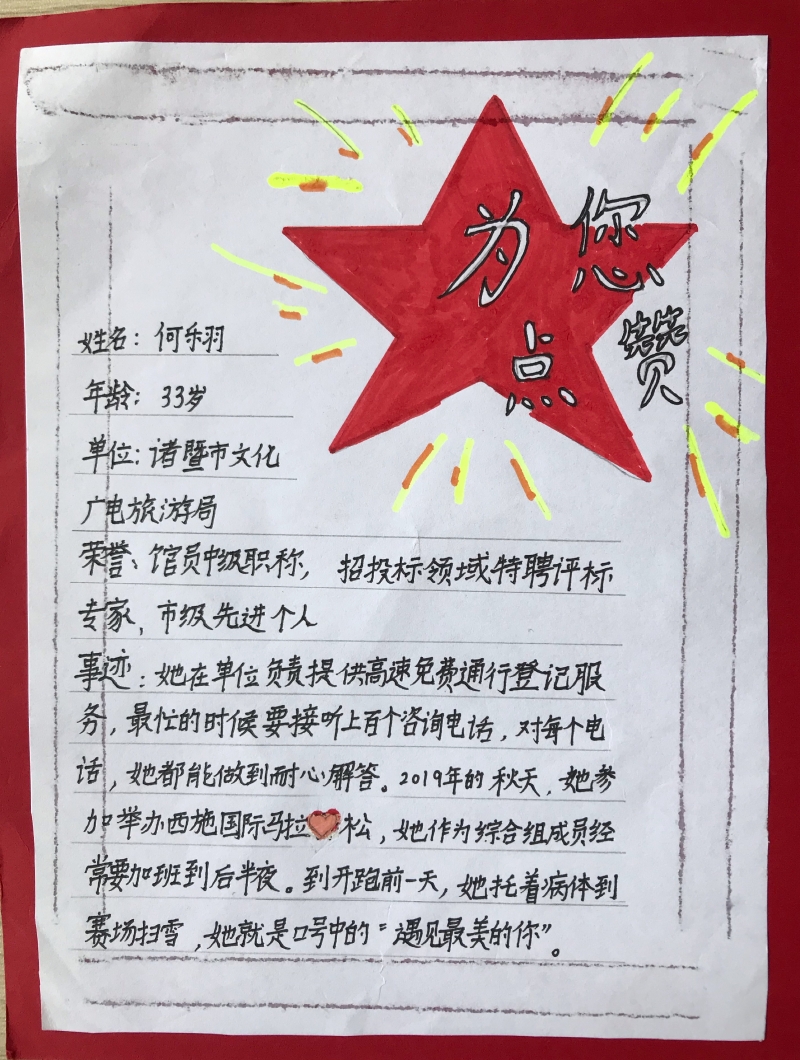 为您
点赞
姓名：何乐羽
年龄：33岁
单位：诸暨市文化
广电旅游局
荣誉：馆员中级职称，招投标领域特聘评标
专家、市级先进个人
事迹：她在单位负责提供高速免费通行登记服
务，最忙的时候要接听上百个咨询电话，对每个电
话，她都能做到耐心解答。2019年的秋天，她参
加举办西施国际马拉松，她作为综合组成员经
常要加班到后半夜。到开跑前一天，她托着病体到
赛场扫雪，她就是口号中的“遇见最美的你”。